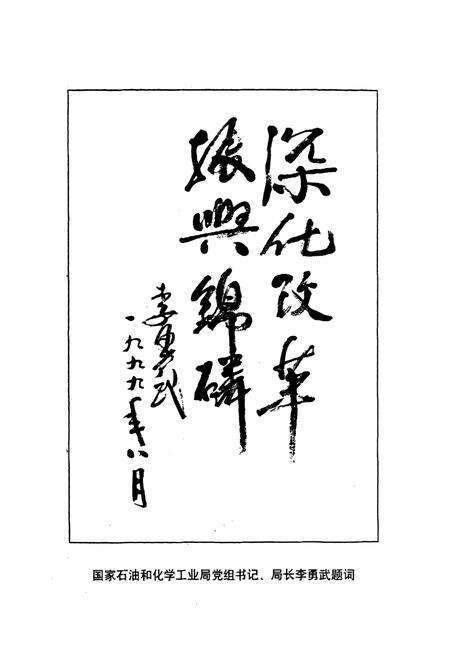 深化改革
振興錦磷
李勇武
一九九九年八月
国家石油和化学工业局党组书记、局长李勇武题词